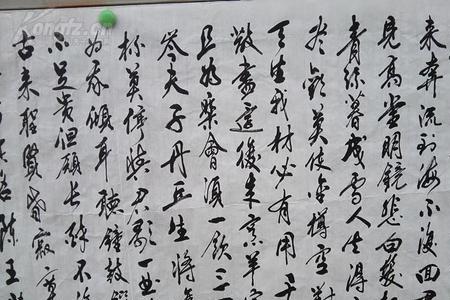 来奔流到海不復回
見高堂明鏡悲白髮
青絲暮成雪人生得
盡歡莫使金樽空對
天生我材必有用千
散盡還復来烹羊宰
且為樂會須一飲三
岑夫子丹丘生將
杯莫停與君歌一曲
為我傾耳聽鐘鼓饌
不足貴但願長醉不
古来聖賢皆寂寞
其名陳王